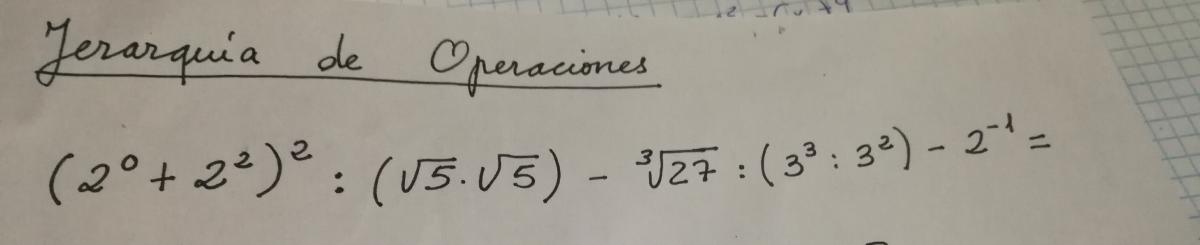 Jerarquía de Operaciones
(2⁰ + 2²)² : (√5 · √5) - ∛27 : (3³ : 3²) - 2⁻¹ =